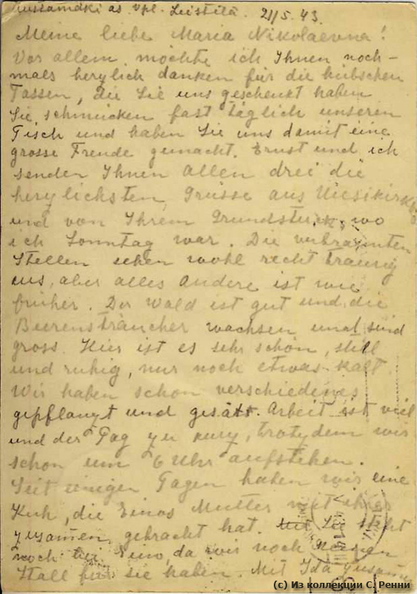 as Vpl. 21/5.43.
Meine liebe Maria Nikolaevna!
Vor allem möchte ich Ihnen noch-
mals herzlich danken für die hübschen
Tassen, die Sie uns geschenkt haben
Sie schmücken fast täglich unseren
Tisch und haben Sie uns damit eine
grosse Freude gemacht. Ernst und ich
senden Ihnen allen drei die
herzlichsten Grüsse aus
und von Ihrem Grundstück, wo
ich Sonntag war. Die verbrannten
Stellen sehen wohl recht traurig
aus, aber alles Andere ist wie
früher. Der Wald ist gut und die
Beerensträucher wachsen und sind
gross. Hier ist es sehr schön, still
und ruhig, nur noch etwas kalt
Wir haben schon verschiedenes
gepflanzt und gesät. Arbeit ist viel
und der Tag zu kurz, trotzdem wir
schon um 6 Uhr aufstehen.
Seit einigen Tagen haben wir eine
Kuh, die Einos Mutter mit
zusamen gebracht hat. Sie steht
noch bei Eino, da wir noch keinen
Stall für sie haben. Mit Ida zusamen
(c) Из коллекции С. Ренни